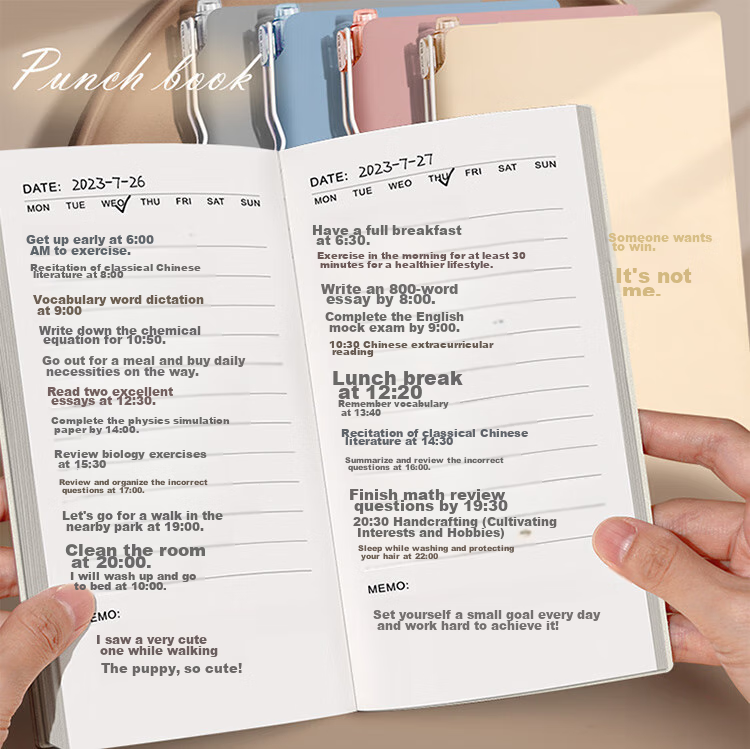 Punch book
DATE: 2023-7-26
MON TUE WED THU FRI SAT SUN
Get up early at 6:00
AM to exercise.
Recitation of classical Chinese
literature at 8:00
Vocabulary word dictation
at 9:00
Write down the chemical
equation for 10:50.
Go out for a meal and buy daily
necessities on the way.
Read two excellent
essays at 12:30.
Complete the physics simulation
paper by 14:00.
Review biology exercises
at 15:30
Review and organize the incorrect
questions at 17:00.
Let's go for a walk in the
nearby park at 19:00.
Clean the room
at 20:00.
I will wash up and go
to bed at 10:00.
EMO:
I saw a very cute
one while walking
The puppy, so cute!
DATE: 2023-7-27
MON TUE WEO THU FRI SAT SUN
Have a full breakfast
at 6:30.
Exercise in the morning for at least 30
minutes for a healthier lifestyle.
Write an 800-word
essay by 8:00.
Complete the English
mock exam by 9:00.
10:30 Chinese extracurricular
reading
Lunch break
at 12:20
Remember vocabulary
at 13:40
Recitation of classical Chinese
literature at 14:30
Summarize and review the incorrect
questions at 16:00.
Finish math review
questions by 19:30
20:30 Handcrafting (Cultivating
Interests and Hobbies)
Sleep while washing and protecting
your hair at 22:00
MEMO:
Set yourself a small goal every day
and work hard to achieve it!
Someone wants
to win.
It's not
me.